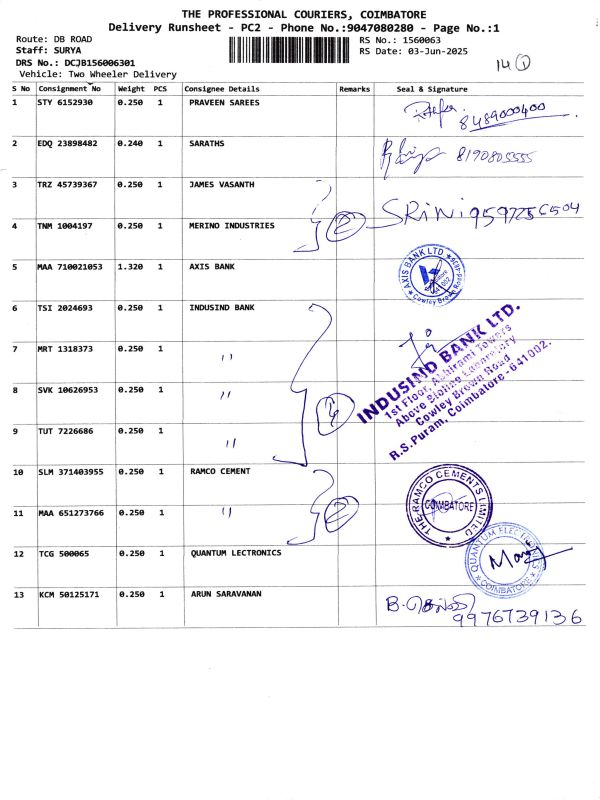 THE PROFESSIONAL COURIERS, COIMBATORE
Delivery Runsheet - PC2 - Phone No.:9047080280 - Page No.:1
Route: DB ROAD
Staff: SURYA
DRS No.: DCJB156006301
Vehicle: Two Wheeler Delivery
RS No.: 1560063
RS Date: 03-Jun-2025
14 1
S No Consignment No Weight PCS Consignee Details Remarks Seal & Signature
1 STY 6152930 0.250 1 PRAVEEN SAREES
8489000400
2 EDQ 23898482 0.240 1 SARATHS
8190805555
3 TRZ 45739367 0.250 1 JAMES VASANTH
2 SRiNi 9597256504
4 TNM 1004197 0.250 1 MERINO INDUSTRIES
5 MAA 710021053 1.320 1 AXIS BANK
AXIS BANK LTD
Cowley Brown Road
6 TSI 2024693 0.250 1 INDUSIND BANK
7 MRT 1318373 0.250 1 "
8 SVK 10626953 0.250 1 "
9 TUT 7226686 0.250 1 "
INDUSIND BANK LTD.
1st Floor, Abhirami Towers
Above Bioline Laboratory
Cowley Brown Road
R.S.Puram, Coimbatore-641002.
10 SLM 371403955 0.250 1 RAMCO CEMENT
11 MAA 651273766 0.250 1 " 2
THE RAMCO CEMENTS LIMITED
COIMBATORE
12 TCG 500065 0.250 1 QUANTUM LECTRONICS
QUANTUM ELECTRONICS
COIMBATORE
13 KCM 50125171 0.250 1 ARUN SARAVANAN
9976739136